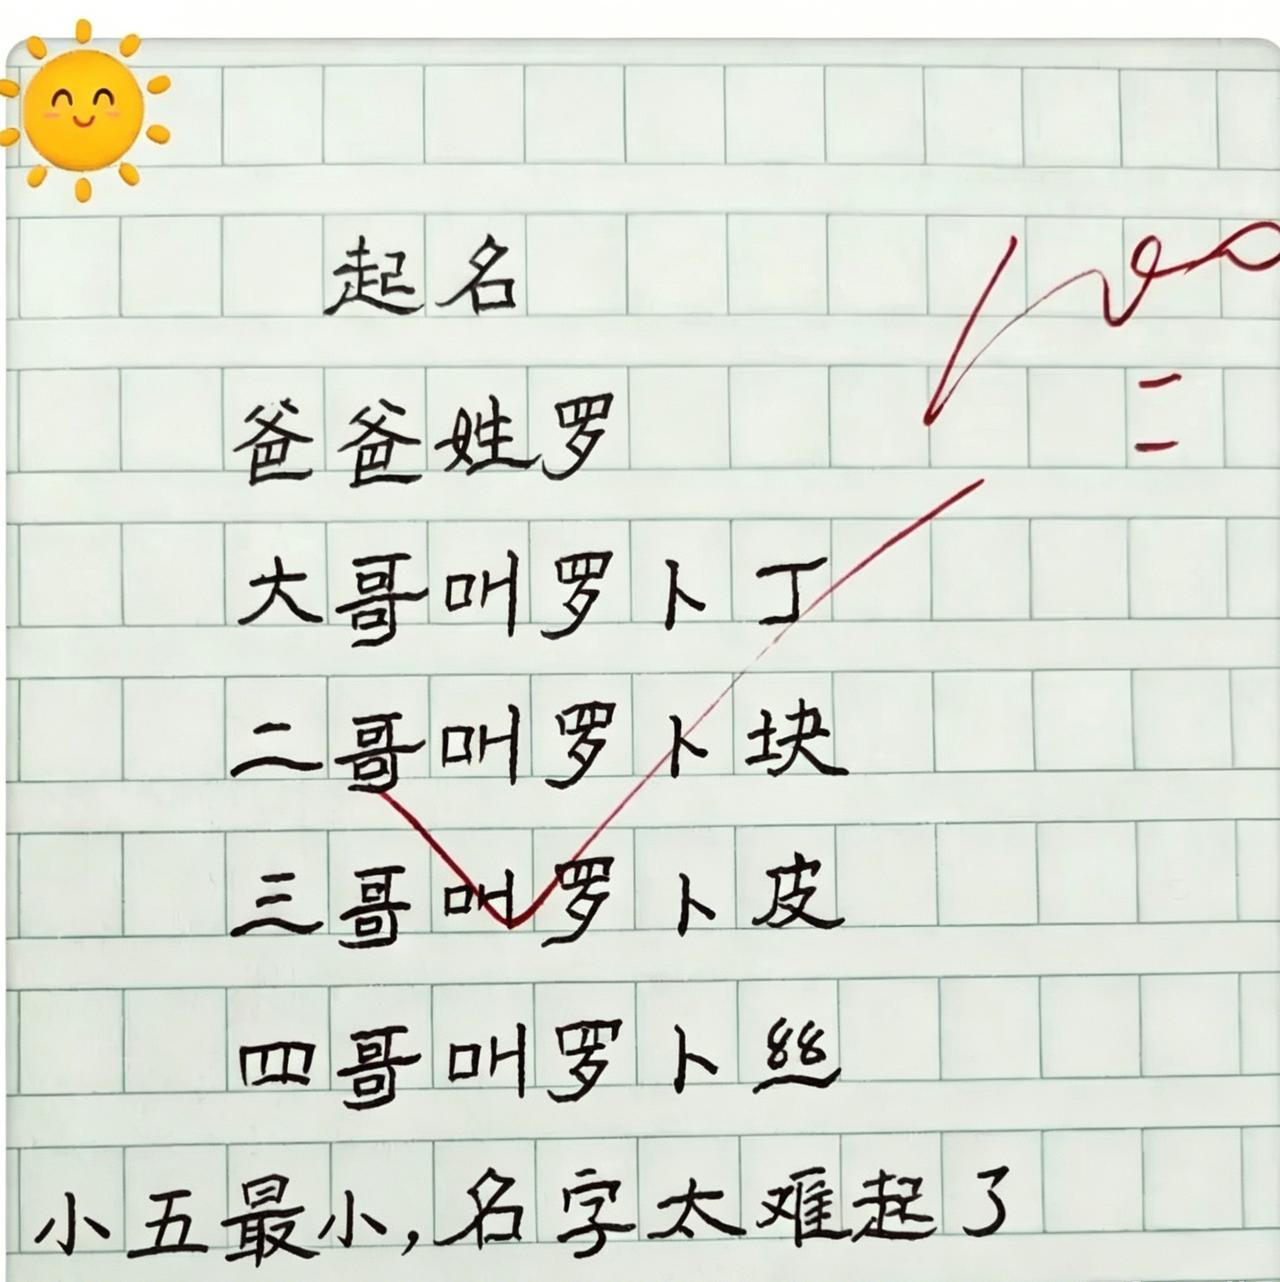 起名
100
爸爸姓罗
大哥叫罗卜丁
二哥叫罗卜块
三哥叫罗卜皮
四哥叫罗卜丝
小五最小,名字太难起了